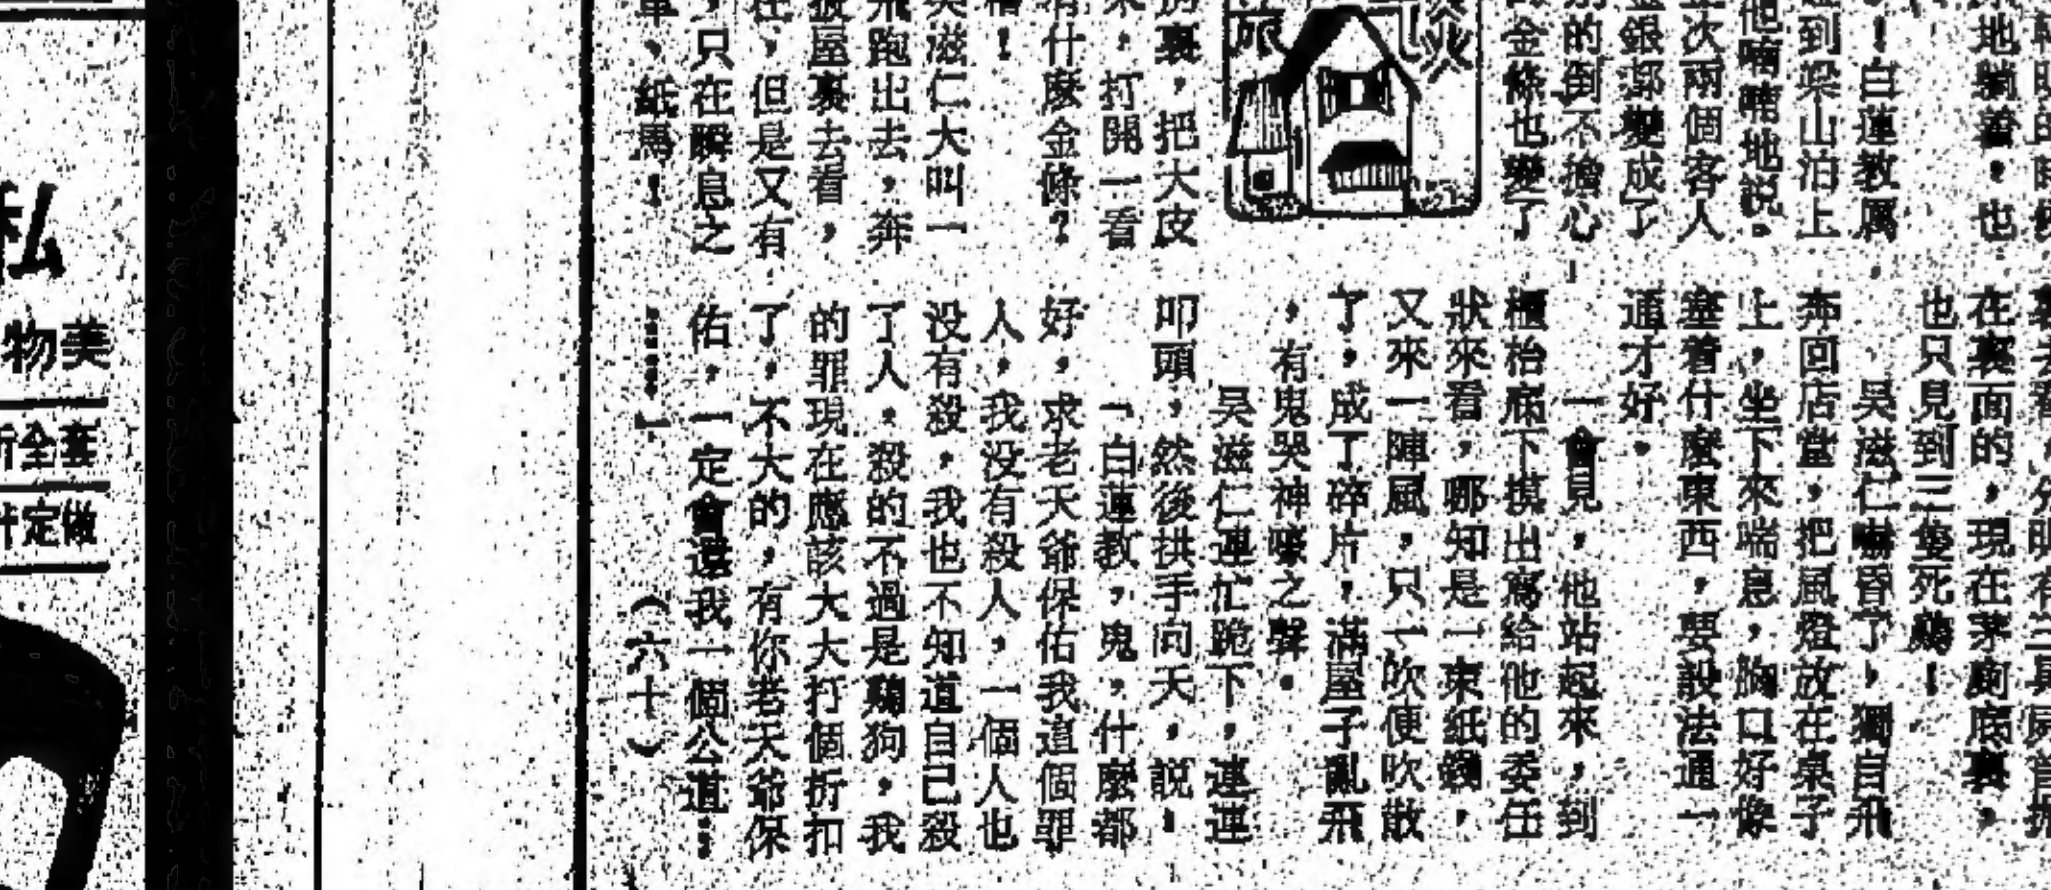 地躺着,也
!白蓮教厲
到梁山泊上
他喃喃地説。
次兩個客人
金銀都變成了
的倒不擔心!
金條也變了
旅
裏,把大皮
來,打開一看
什麼金條?
糟!
吳滋仁大叫一
飛跑出去,奔
屋裏去看,
在,但是又有
,只在瞬息之
、紙馬!
在裏面的,現在茅廁底裏,
也只見到三隻死鷄!
吳滋仁嚇昏了,獨自飛
奔回店堂,把風燈放在桌子
上,坐下來喘息,胸口好像
塞着什麼東西,要設法通一
通才好。
一會見,他站起來,到
櫃枱底下摸出寫給他的委任
狀來看,哪知是一束紙錢,
又來一陣風,只一吹便吹散
了,成了碎片,滿屋子亂飛
,有鬼哭神嚎之聲。
吳滋仁連忙跪下,連連
叩頭,然後拱手向天,說:
「白蓮教,鬼,什麼都
好,求老天爺保佑我這個罪
人,我没有殺人,一個人也
没有殺,我也不知道自己殺
了人,殺的不過是鷄狗,我
的罪現在應該大大打個折扣
了,不大的,有你老天爺保
佑,一定會還我一個公道……
……」
(六十)
私
物美
全套
定做